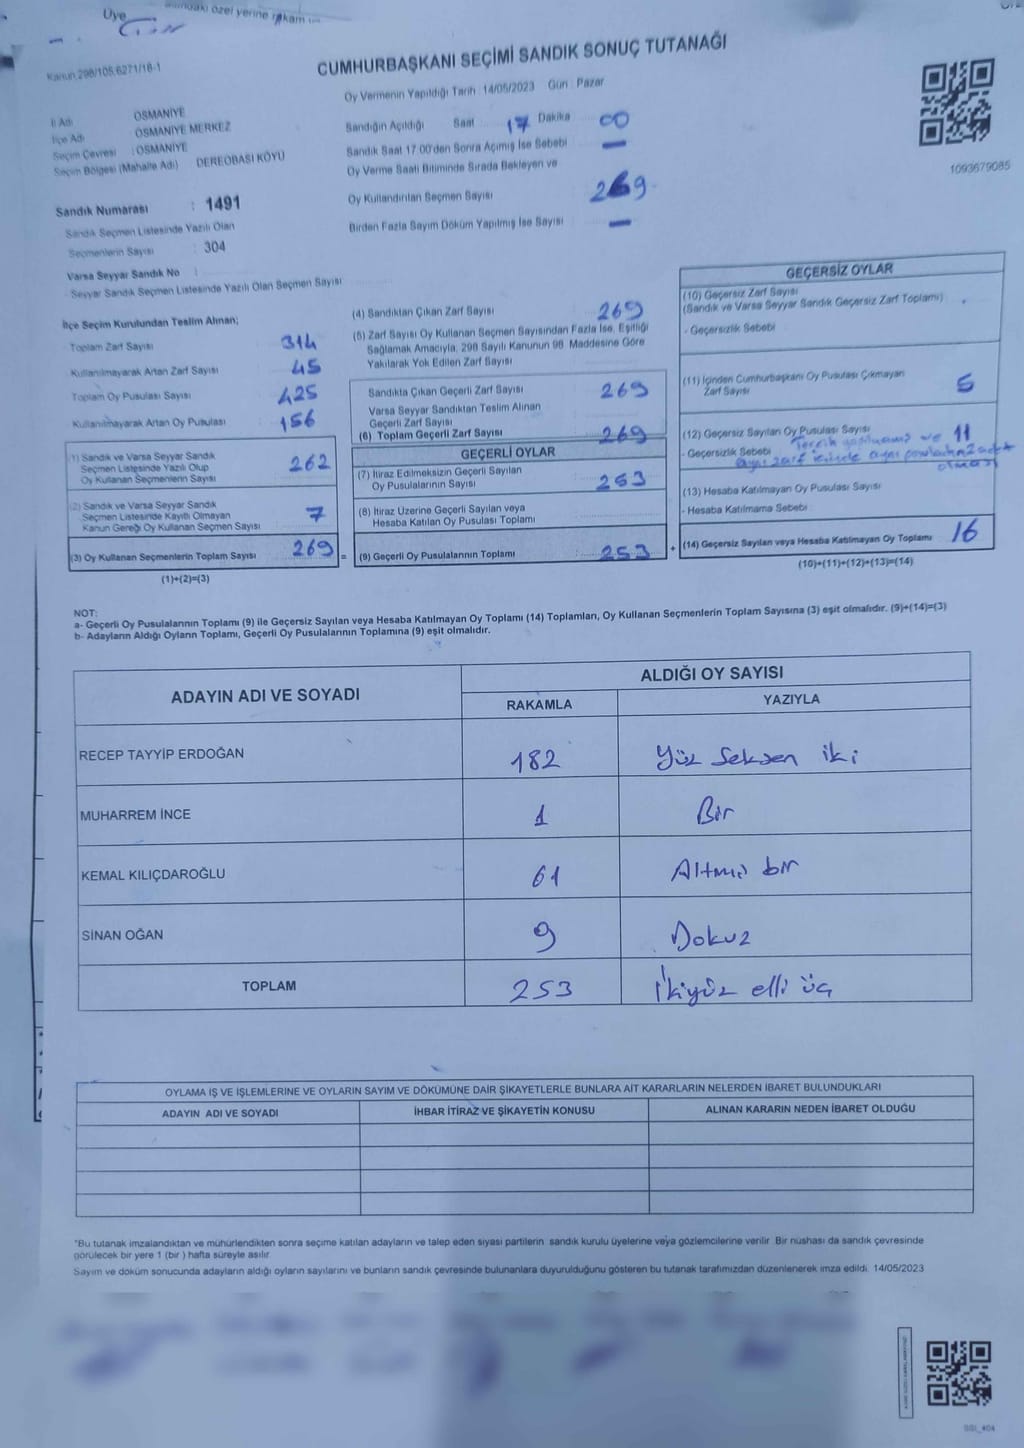 Üye
Kanun 298/105,6271/18-1
CUMHURBAŞKANI SEÇİMİ SANDIK SONUÇ TUTANAĞI
Oy Vermenin Yapıldığı Tarih : 14/05/2023 Gün : Pazar
İl Adı OSMANİYE
İlçe Adı OSMANİYE MERKEZ
Seçim Çevresi : OSMANİYE
Seçim Bölgesi (Mahalle Adı) DEREOBASI KÖYÜ
Sandık Numarası : 1491
Sandık Seçmen Listesinde Yazılı Olan
Seçmenlerin Sayısı : 304
Varsa Seyyar Sandık No :
Seyyar Sandık Seçmen Listesinde Yazılı Olan Seçmen Sayısı
Sandığın Açıldığı Saat 17 Dakika 00
Sandık Saat 17:00'den Sonra Açımış İse Sebebi —
Oy Verme Saati Bitiminde Sırada Bekleyen ve
Oy Kullandırılan Seçmen Sayısı 269
Birden Fazla Sayım Döküm Yapılmış İse Sayısı —
1093679085
İlçe Seçim Kurulundan Teslim Alınan;
Toplam Zarf Sayısı 314
Kullanılmayarak Artan Zarf Sayısı 45
Toplam Oy Pusulası Sayısı 425
Kullanılmayarak Artan Oy Pusulası 156
(1) Sandık ve Varsa Seyyar Sandık
Seçmen Listesinde Yazılı Olup
Oy Kullanan Seçmenlerin Sayısı 262
(2) Sandık ve Varsa Seyyar Sandık
Seçmen Listesinde Kayıtlı Olmayan
Kanun Gereği Oy Kullanan Seçmen Sayısı 7
(3) Oy Kullanan Seçmenlerin Toplam Sayısı 269 =
(1)+(2)=(3)
(4) Sandıktan Çıkan Zarf Sayısı 269
(5) Zarf Sayısı Oy Kullanan Seçmen Sayısından Fazla İse, Eşitliği
Sağlamak Amacıyla, 298 Sayılı Kanunun 98. Maddesine Göre
Yakılarak Yok Edilen Zarf Sayısı
Sandıkta Çıkan Geçerli Zarf Sayısı 269
Varsa Seyyar Sandıktan Teslim Alınan
Geçerli Zarf Sayısı
(6) Toplam Geçerli Zarf Sayısı 269
GEÇERLİ OYLAR
(7) İtiraz Edilmeksizin Geçerli Sayılan
Oy Pusulalarının Sayısı 253
(8) İtiraz Üzerine Geçerli Sayılan veya
Hesaba Katılan Oy Pusulası Toplamı
(9) Geçerli Oy Pusulalarının Toplamı 253 +
GEÇERSİZ OYLAR
(10) Geçersiz Zarf Sayısı
(Sandık ve Varsa Seyyar Sandık Geçersiz Zarf Toplamı)
- Geçersizlik Sebebi
(11) İçinden Cumhurbaşkanı Oy Pusulası Çıkmayan
Zarf Sayısı 5
(12) Geçersiz Sayılan Oy Pusulası Sayısı 11
- Geçersizlik Sebebi Tercih yapılmamış ve
aynı zarf içinde aynı 2 adet
olması
(13) Hesaba Katılmayan Oy Pusulası Sayısı
- Hesaba Katılmama Sebebi
(14) Geçersiz Sayılan veya Hesaba Katılmayan Oy Toplamı 16
(10)+(11)+(12)+(13)=(14)
NOT:
a- Geçerli Oy Pusulalarının Toplamı (9) ile Geçersiz Sayılan veya Hesaba Katılmayan Oy Toplamı (14) Toplamları, Oy Kullanan Seçmenlerin Toplam Sayısına (3) eşit olmalıdır. (9)+(14)=(3)
b- Adayların Aldığı Oyların Toplamı, Geçerli Oy Pusulalarının Toplamına (9) eşit olmalıdır.
ADAYIN ADI VE SOYADI ALDIĞI OY SAYISI
RAKAMLA YAZIYLA
RECEP TAYYİP ERDOĞAN 182 Yüz Seksen iki
MUHARREM İNCE 1 Bir
KEMAL KILIÇDAROĞLU 61 Altmış bir
SİNAN OĞAN 9 Dokuz
TOPLAM 253 İkiyüz elli üç
OYLAMA İŞ VE İŞLEMLERİNE VE OYLARIN SAYIM VE DÖKÜMÜNE DAİR ŞİKAYETLERLE BUNLARA AİT KARARLARIN NELERDEN İBARET BULUNDUKLARI
ADAYIN ADI VE SOYADI İHBAR İTİRAZ VE ŞİKAYETİN KONUSU ALINAN KARARIN NEDEN İBARET OLDUĞU
*Bu tutanak imzalandıktan ve mühürlendikten sonra seçime katılan adayların ve talep eden siyasi partilerin sandık kurulu üyelerine veya gözlemcilerine verilir. Bir nüshası da sandık çevresinde
görülecek bir yere 1 (bir ) hafta süreyle asılır.
Sayım ve döküm sonucunda adayların aldığı oyların sayılarını ve bunların sandık çevresinde bulunanlara duyurulduğunu gösteren bu tutanak tarafımızdan düzenlenerek imza edildi. 14/05/2023